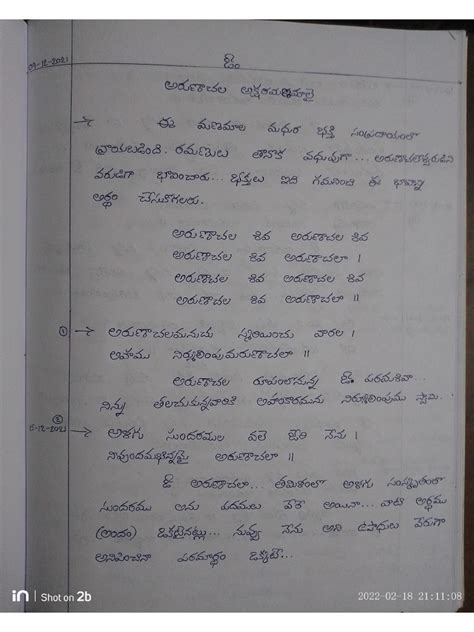 09-12-2021
ఓం
అరుణాచల అక్షరమణమాలై
→ ఈ మణమాల మధుర భక్తి సంప్రదాయంలో
వ్రాయబడింది. రమణులు తానొక వధువుగా... అరుణాచలేశ్వరుడిని
వరుడిగా భావించారు... భక్తులు ఇది గమనించి ఈ భావాన్ని
అర్థం చేసుకోగలరు.
అరుణాచల శివ అరుణాచల శివ
అరుణాచల శివ అరుణాచలా ।
అరుణాచల శివ అరుణాచల శివ
అరుణాచల శివ అరుణాచలా ॥
① → అరుణాచలమనుచు స్మరియించు వారల ।
అహము నిర్మూలింపుమరుణాచలా ॥
అరుణాచల రూపంలోనున్న ఓ పరమశివా...
నిన్ను తలచుకున్నవారికి అహంకారమును నిర్మూలింపుము స్వామి.
②
-12-2021 → అళగు సుందరముల వలె చేరి నేను ।
అరుణాచలా ॥
ఓ అరుణాచలా... తమిళంలో అళగు సంస్కృతంలో
సుందరము అను పదములు వేరే అయినా... వాటి అర్థము
(అందం) ఒక్కటైనట్లు... నువ్వు నేను అని ఉపాధులు వేరుగా
అనిపించినా పరమార్థం ఒక్కటే...
in | Shot on 2b
2022-02-18 21:11:08